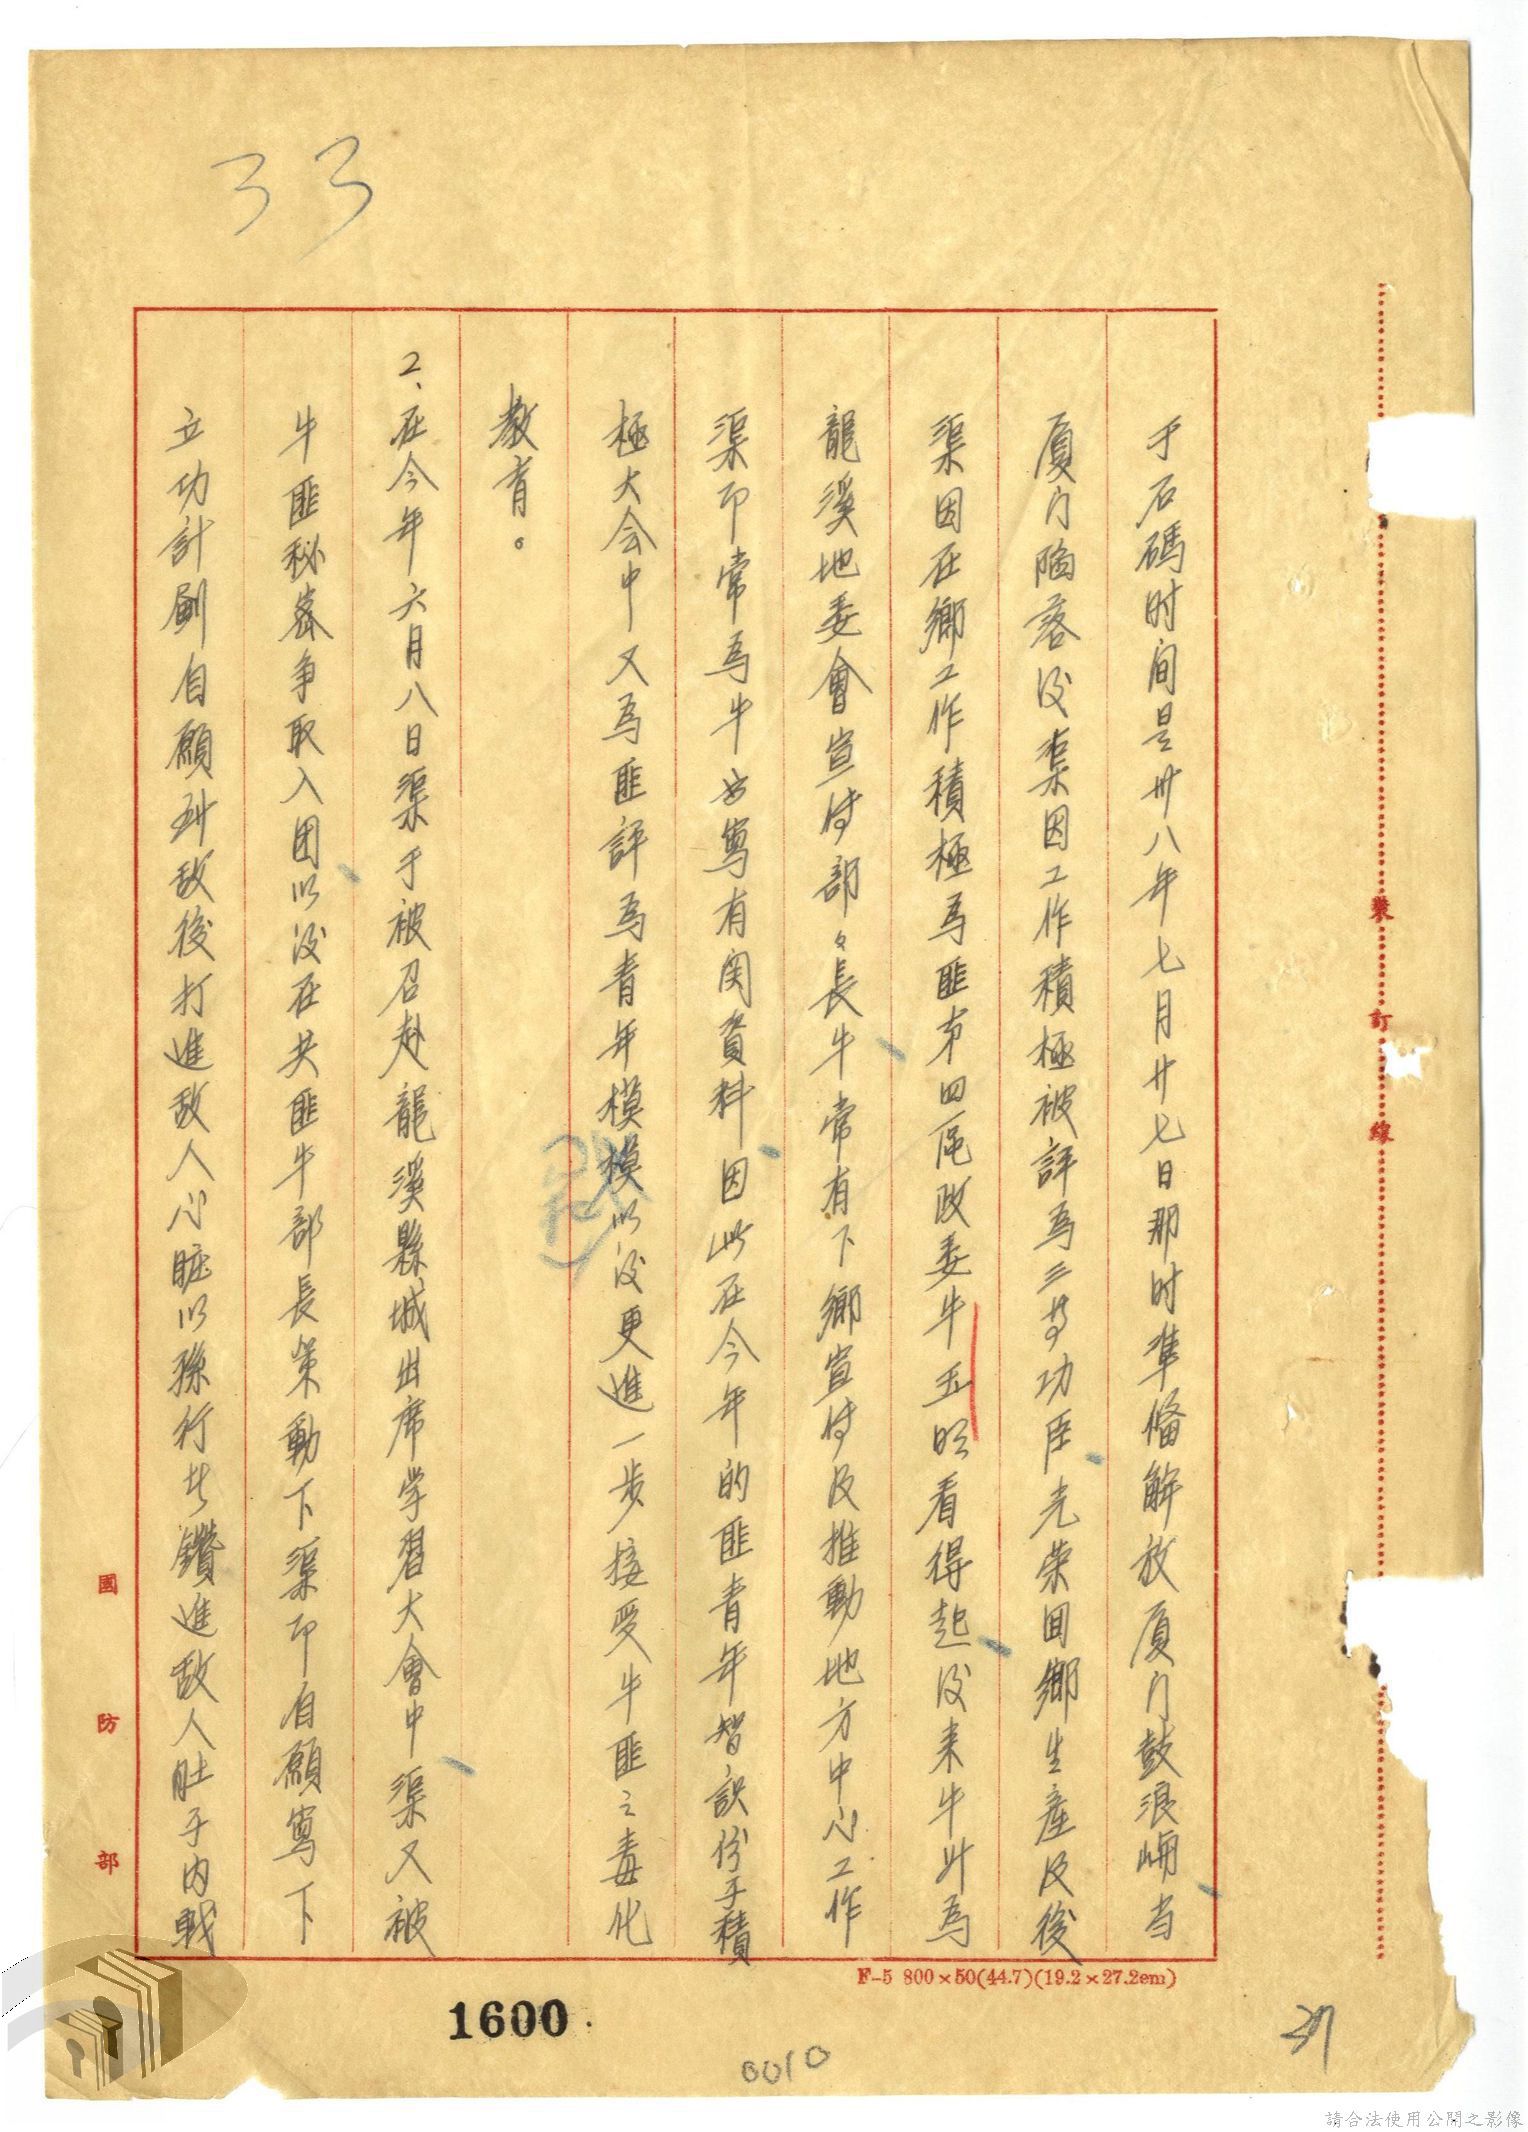 33
于石碼时间是卅八年七月廿七日那时準俻解放厦门鼓浪嶼当
厦门陷落後渠因工作積極被評為三等功臣光荣囬鄉生產及後
渠因在鄉工作積極為匪第四區政委牛玉明看得起後来牛升為
龍溪地委會宣传部々長牛常有下鄉宣传及推動地方中心工作
渠卽常為牛出寫有関資料因此在今年的匪青年智識份子積
極大会中又為匪評為青年模模以後更進一步接受牛匪之毒化
教育。
2、在今年六月八日渠于被召赴龍溪縣城出席学習大會中渠又被
牛匪秘密争取入团以後在共匪牛部長策動下渠卽自願寫下
立功計劃自願到敌後打進敌人心脏以孫行者鑽進敌人肚子内戦
裝訂線
國防部
F-5 800×50(44.7)(19.2×27.2em)
1600
0010
請合法使用公開之影像